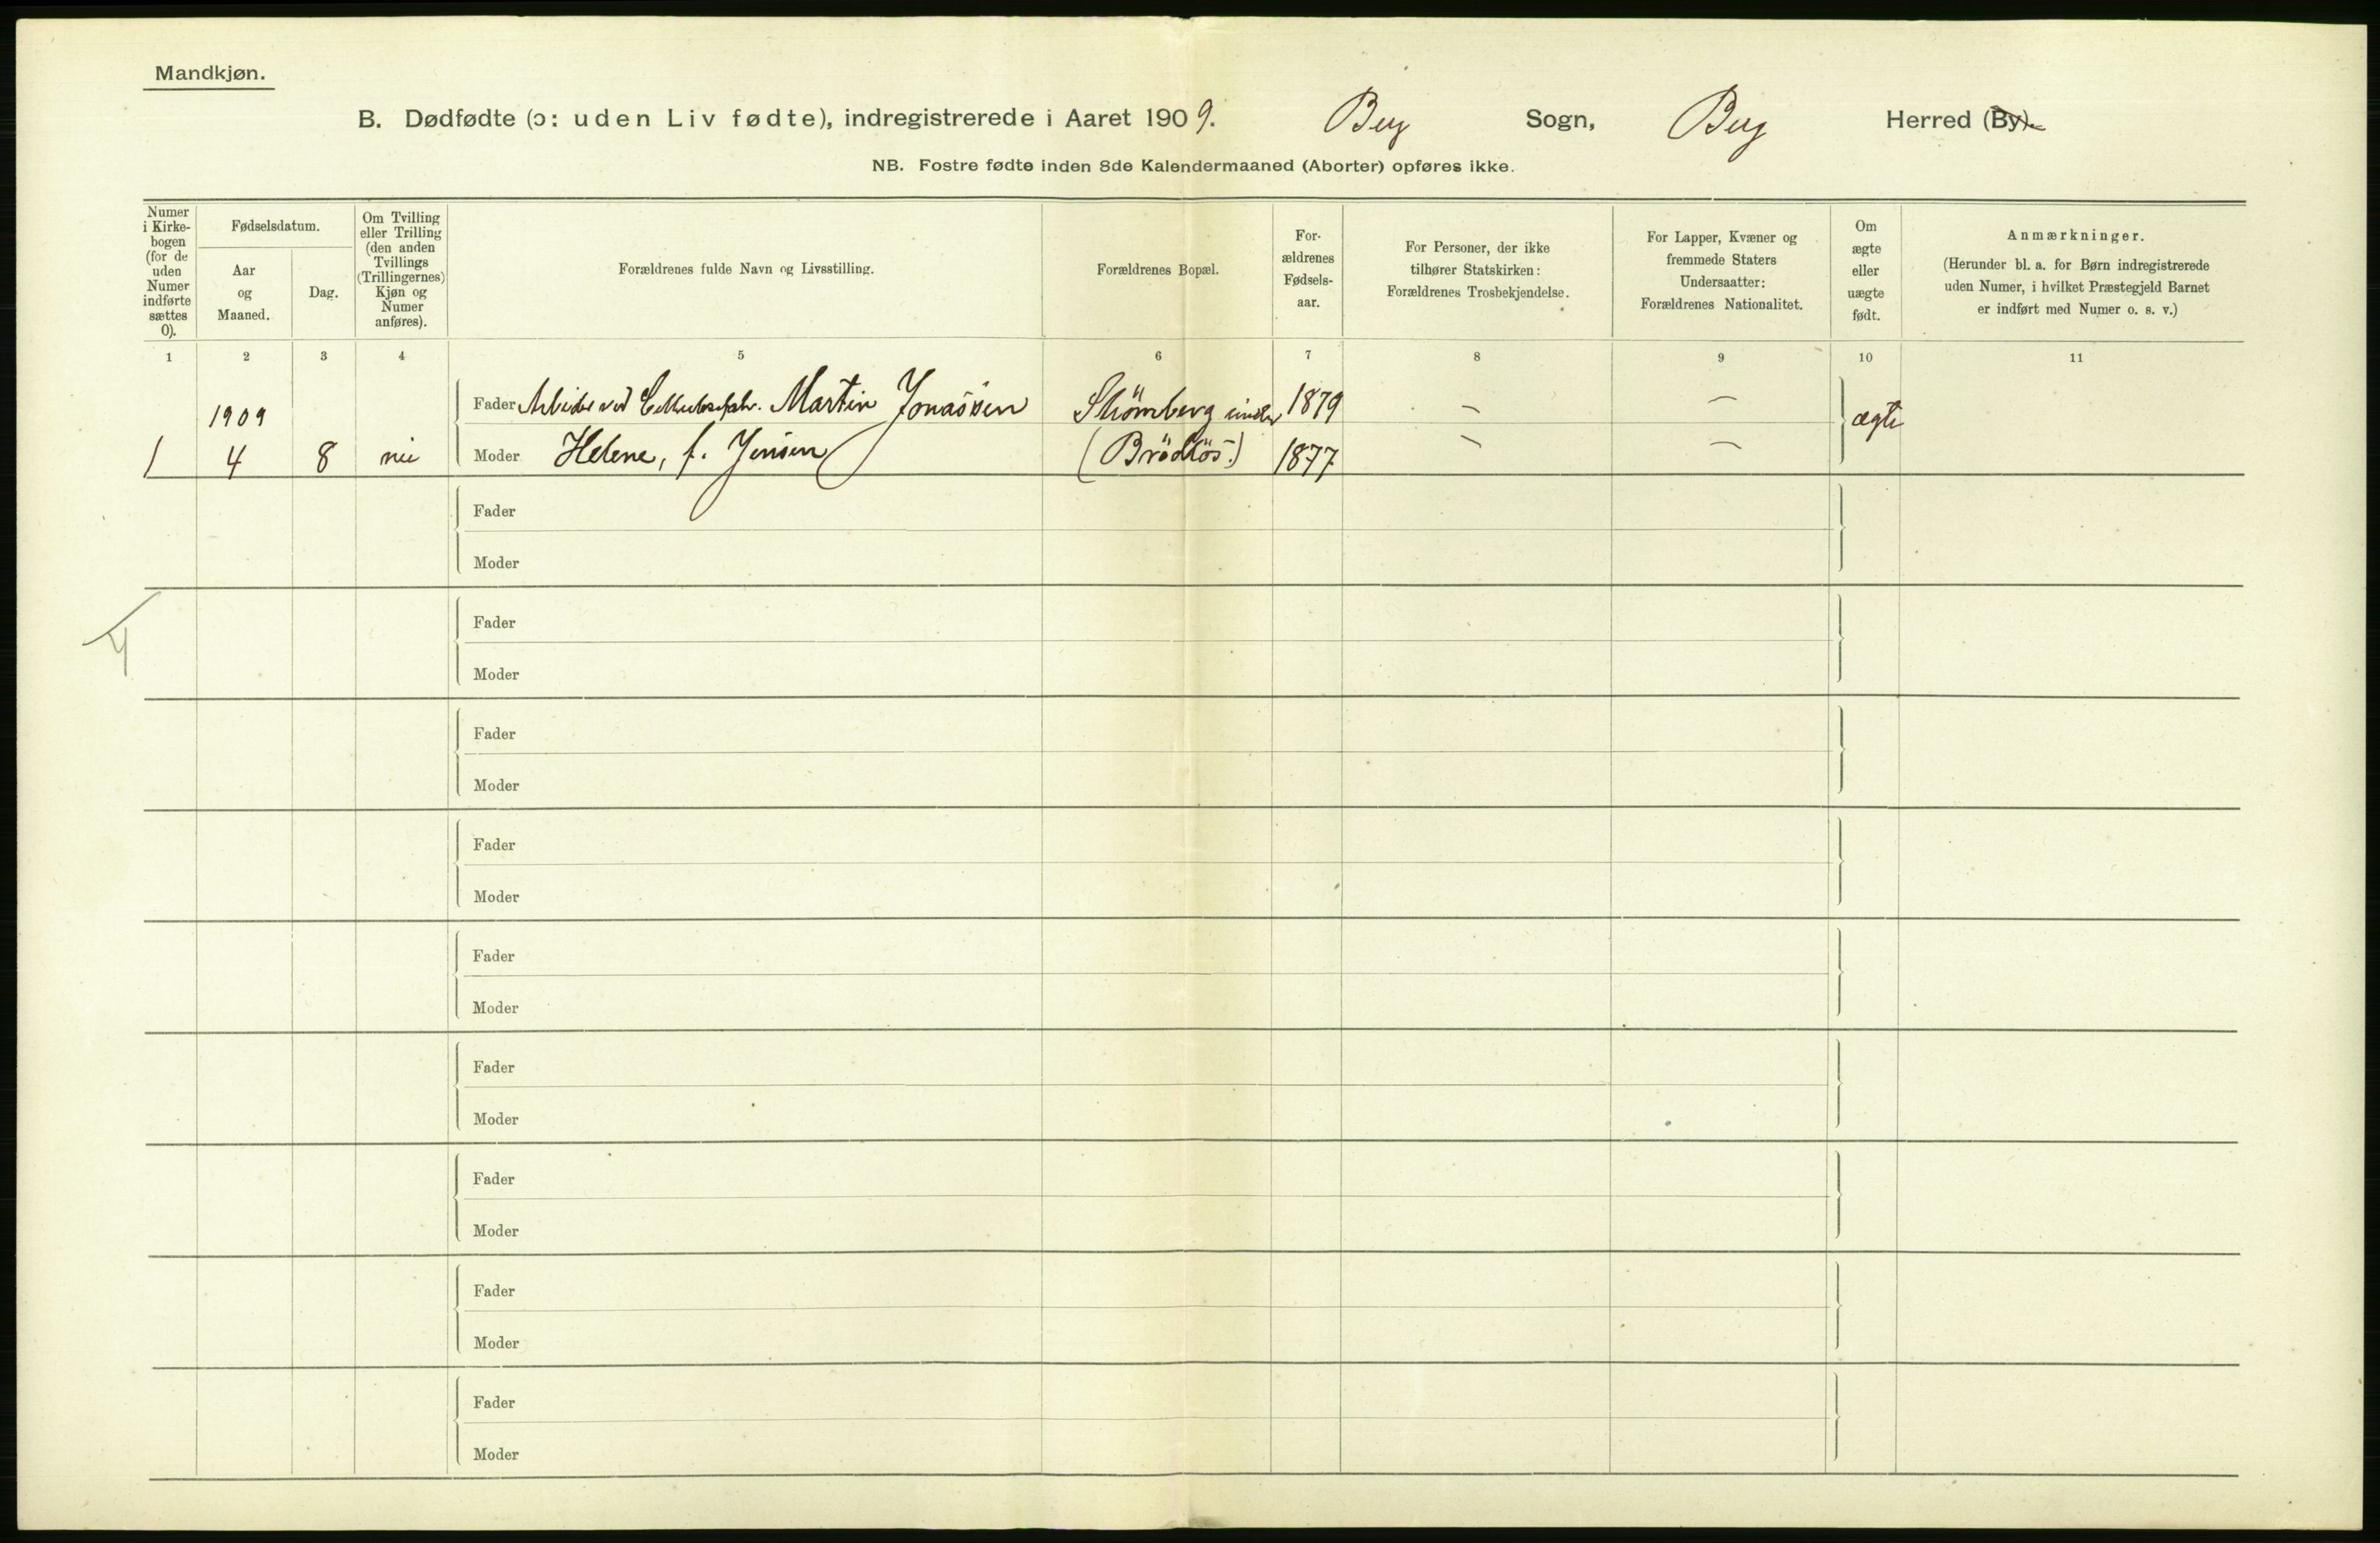 Mandkjøn.
B. Dødfødte (ɔ: uden Liv fødte), indregistrerede i Aaret 1909. Berg Sogn, Berg Herred (By).
NB. Fostre fødte inden 8de Kalendermaaned (Aborter) opføres ikke.
Numer i Kirke-bogen (for de uden Numer indførte sættes 0).
Fødselsdatum.
Aar og Maaned.
Dag.
Om Tvilling eller Trilling (den anden Tvillings (Trillingernes) Kjøn og Numer anføres).
Forældrenes fulde Navn og Livsstilling.
Forældrenes Bopæl.
For-ældrenes Fødsels-aar.
For Personer, der ikke tilhører Statskirken: Forældrenes Trosbekjendelse.
For Lapper, Kvæner og fremmede Staters Undersaatter: Forældrenes Nationalitet.
Om ægte eller uægte født.
Anmærkninger.
(Herunder bl. a. for Børn indregistrerede uden Numer, i hvilket Præstegjeld Barnet er indført med Numer o. s. v.)
1 2 3 4 5 6 7 8 9 10 11
1909 Fader Arbeider ved Martin Jonassen under 1879 — — ægte
1 4 8 nei Moder Helene, f. Jensen (Brödlös.) 1877 — —
Fader
Moder
4
Fader
Moder
Fader
Moder
Fader
Moder
Fader
Moder
Fader
Moder
Fader
Moder
Fader
Moder
Fader
Moder